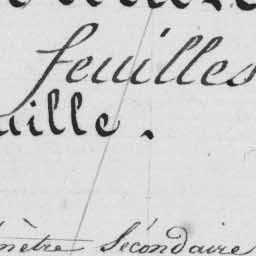 feuilles
aille.
nètre Sécondaire